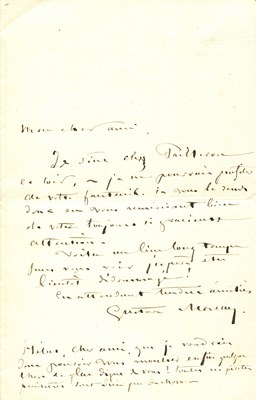 Mon cher ami,
Je dîne chez
ce soir, je ne pourrai profiter
de votre fauteuil. je vous le rends
donc en vous remerciant bien
de votre toujours si gracieuse
attention.
Voilà un bien long temps
sans vous voir j'espère être
bientôt dédommagé.
En attendant tendre amitié,
Gustave Moreau
Hélas, cher ami, que je voudrais
donc pouvoir vous montrer enfin quelque
chose de plus digne de vous! toutes ces petites
peintures sont